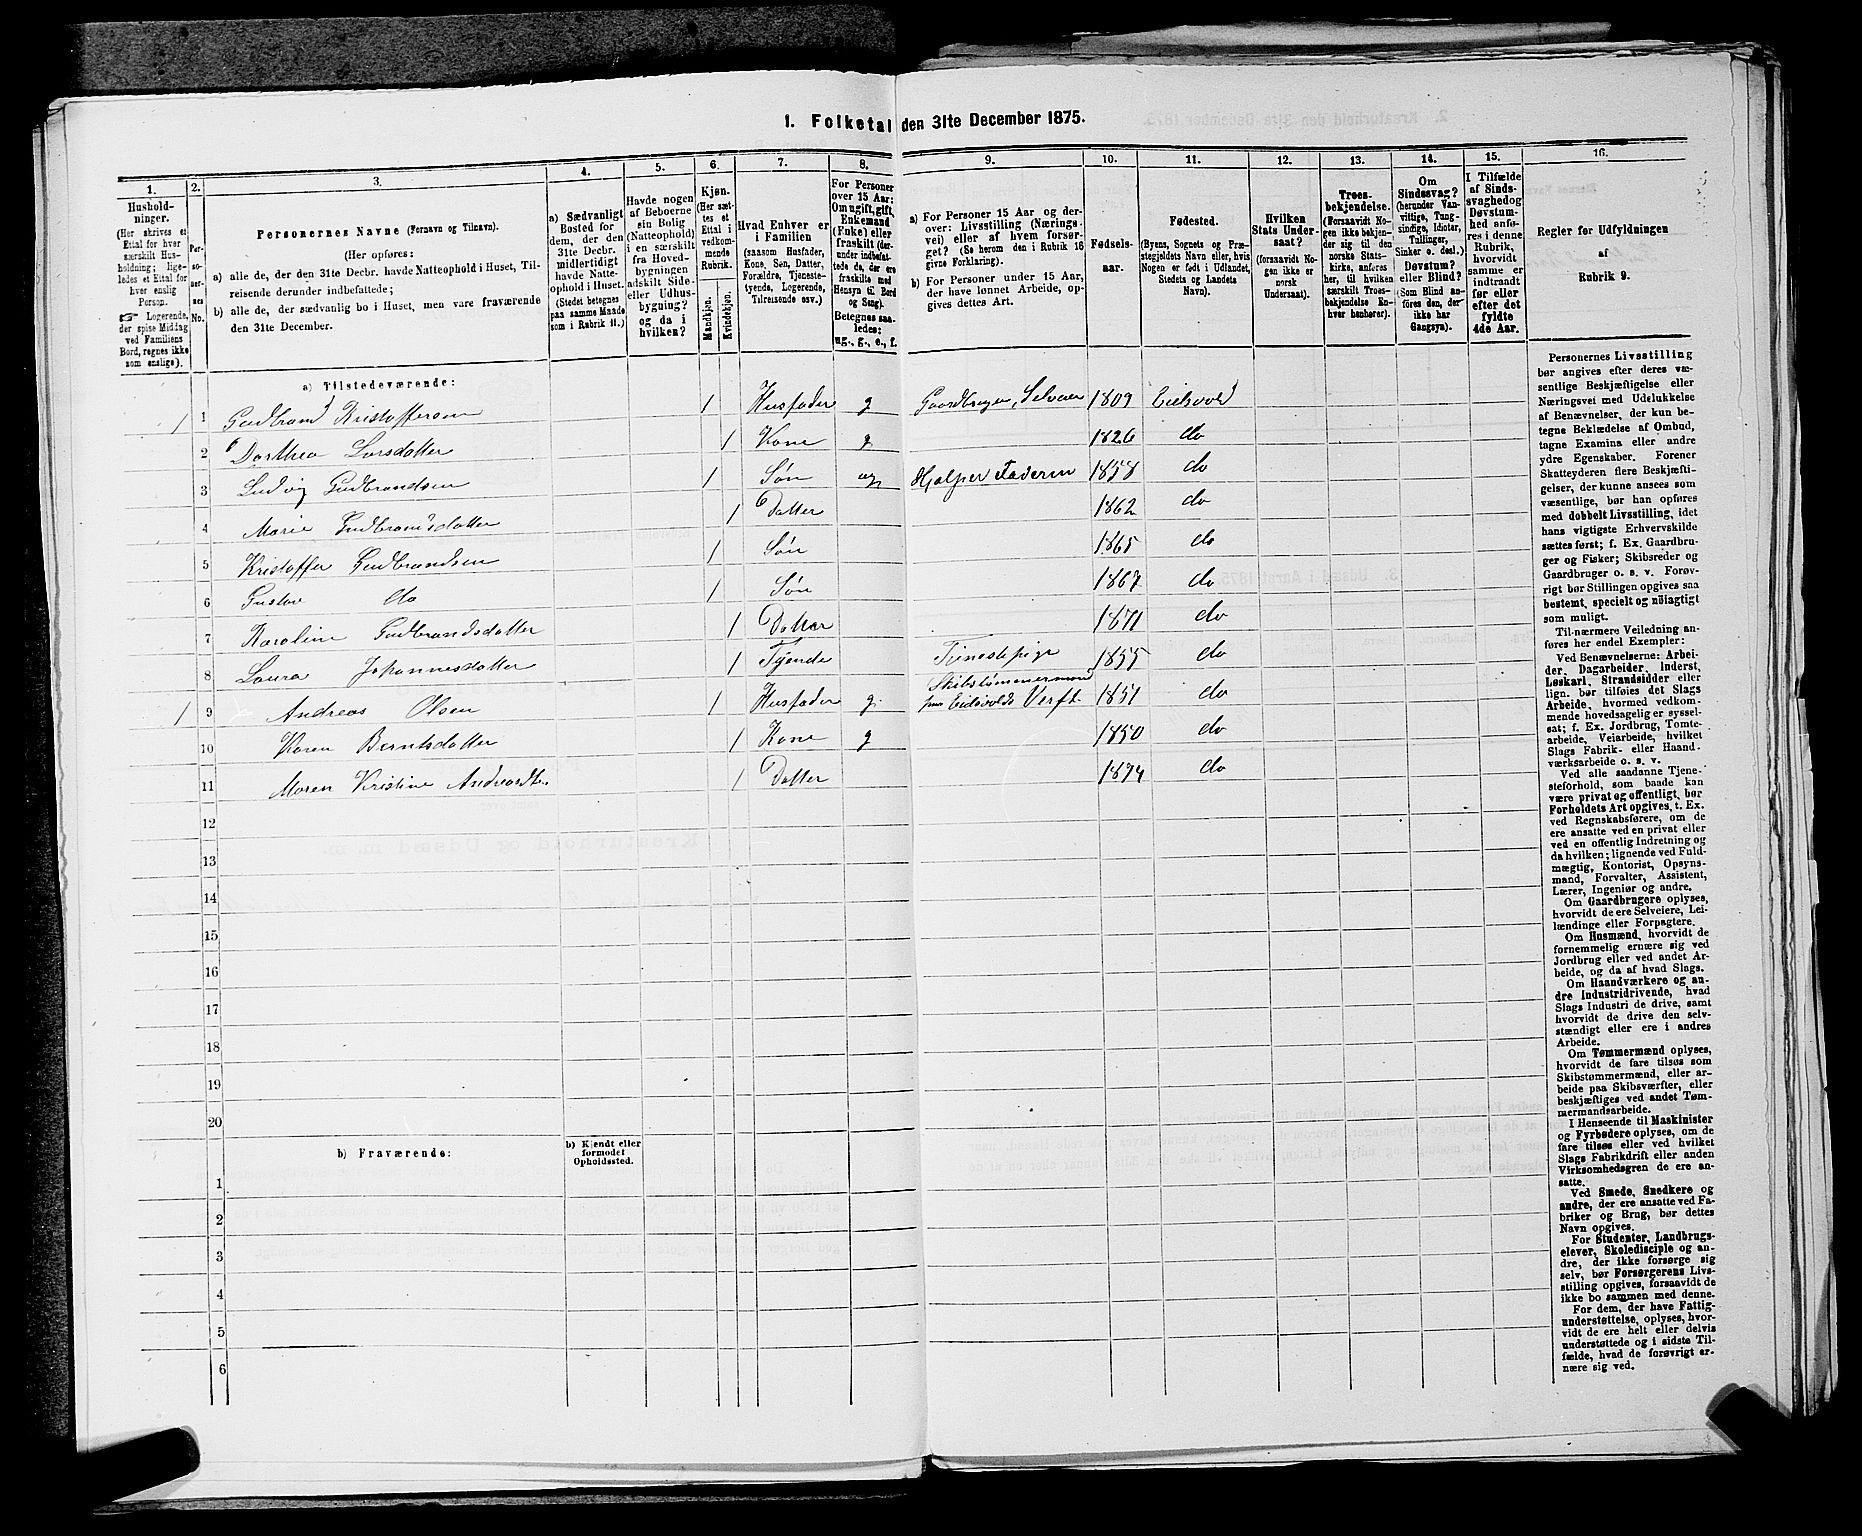 1. Folketal den 31te December 1875.
1.
2.
3.
4.
5.
6.
7.
8.
9.
10.
11.
12.
13.
14.
15.
16.
Hushold-
ninger.
(Her skrives et
Ettal for hver
særskilt Hus-
holdning; lige-
ledes et Ettal for
hver enslig
Person.
☞ Logerende,
der spise Middag
ved Familiens
Bord, regnes ikke
som enslige).
Per-
so-
ner-
nes
No.
Personernes Navne (Fornavn og Tilnavn).
(Her opføres:
a) alle de, der den 31te Decbr. havde Natteophold i Huset, Til-
reisende derunder indbefattede;
b) alle de, der sædvanlig bo i Huset, men vare fraværende
den 31te December.
a) Sædvanligt
Bosted for
dem, der den
31te Decbr.
midlertidigt
havde Natte-
ophold i Huset.
(Stedet betegnes
paa samme Maade
som i Rubrik 11.)
Havde nogen
af Beboerne
sin Bolig
(Natteophold)
i en særskilt
fra Hoved-
bygningen
adskilt Side-
eller Udhus-
bygning?
og da i
hvilken?
Kjøn.
(Her sæt-
tes et
Ettal i
vedkom-
mende
Rubrik.
Mandkjøn.
Kvindekjøn.
Hvad Enhver er
i Familien
(saasom Husfader,
Kone, Søn, Datter,
Forældre, Tjeneste-
tyende, Logerende,
Tilreisende osv.)
For Personer
over 15 Aar:
Om ugift, gift,
Enkemand
(Enke) eller
fraskilt (der-
under indbefat-
tede de, der ere
fraskilte med
Hensyn til Bord
og Seng).
Betegnes saa-
ledes:
ug., g., e., f.
a) For Personer 15 Aar og der-
over: Livsstilling (Nærings-
vei) eller af hvem forsør-
get? (Se herom den i Rubrik 16
givne Forklaring).
b) For Personer under 15 Aar,
der have lønnet Arbeide, op-
gives dettes Art.
Fødsels-
aar.
Fødested.
(Byens, Sognets og Præ-
stegjeldets Navn eller, hvis
Nogen er født i Udlandet,
Stedets og Landets
Navn).
Hvilken
Stats Under-
saat?
(forsaavidt No-
gen ikke er
norsk
Undersaat).
Troes-
bekjendelse.
(Forsaavidt No-
gen ikke bekjen-
der sig til den
norske Stats-
kirke, anføres
her, til hvilken
særskilt Troes-
bekjendelse En-
hver henhører).
Om
Sindssvag?
(herunder Van-
vittige, Tung-
sindige, Idioter,
Tullinger,
Sinker o. desl.)
Døvstum?
eller Blind?
(Som Blind an-
føres den, der
ikke har
Gangsyn).
I Tilfælde
af Sinds-
svaghed og
Døvstum-
hed anfø-
res i denne
Rubrik,
hvorvidt
samme er
indtraadt
før eller
efter det
fyldte
4de Aar.
Regler for Udfyldningen
af
Rubrik 9.
a) Tilstedeværende:
1 1 Gudbrand Kristoffersen 1 Husfader g Gaardbruger, Selveier 1809 Eidsvold
2 Dorthea Larsdatter 1 Kone g 1826 do
3 Ludvig Gudbrandsen 1 Søn ug Hjælper Faderen 1858 do
4 Marie Gudbrandsdatter 1 Datter 1862 do
5 Kristoffer Gudbrandsen 1 Søn 1865 do
6 Gustav do 1 Søn 1867 do
7 Karoline Gudbrandsdatter 1 Datter 1871 do
8 Laura Johannesdatter 1 Tyende Tjenestepige 1855 do
Skibstømmermand
1 9 Andreas Olsen 1 Husfader g. paa Eidsvolds Verft. 1851 do
10 Karen Berntsdatter 1 Kone g 1850 do
11 Maren Kristine Andreasdt. 1 Datter 1874 do
12
13
14
15
16
17
18
19
20
b) Fraværende:
b) Kjendt eller
formodet
Opholdssted.
1
2
3
4
5
6
Personernes Livsstilling
bør angives efter deres væ-
sentlige Beskjæftigelse eller
Næringsvei med Udelukkelse
af Benævnelser, der kun be-
tegne Beklædelse af Ombud,
tagne Examina eller andre
ydre Egenskaber. Forener
Skatteyderen flere Beskjæfti-
gelser, der kunne ansees som
væsentlige, bør han opføres
med dobbelt Livsstilling, idet
hans vigtigste Erhvervskilde
sættes først; f. Ex. Gaardbru-
ger og Fisker; Skibsreder og
Gaardbruger o. s. v. Forøv-
rigt bør Stillingen opgives saa
bestemt, specielt og nøiagtigt
som muligt.
Til nærmere Veiledning an-
føres her endel Exempler:
Ved Benævnelserne: Arbei-
der, Dagarbeider, Inderst,
Løskarl, Strandsidder eller
lign. bør tilføies det Slags
Arbeide, hvormed vedkom-
mende hovedsagelig er syssel-
sat; f. Ex. Jordbrug, Tomte-
arbeide, Veiarbeide, hvilket
Slags Fabrik- eller Haand-
værksarbeide o. s. v.
Ved alle saadanne Tjene-
steforhold, som baade kan
være privat og offentligt, bør
Forholdets Art opgives, t. Ex.
ved Regnskabsførere, om de
ere ansatte ved en privat eller
ved en offentlig Indretning og
da hvilken; lignende ved Fuld-
mægtig, Kontorist, Opsyns-
mand, Forvalter, Assistent,
Lærer, Ingeniør og andre.
Om Gaardbrugere oplyses,
hvorvidt de ere Selveiere, Lei-
lændinge eller Forpagtere.
Om Husmænd, hvorvidt de
fornemmelig ernære sig ved
Jordbrug eller ved andet Ar-
beide, og da af hvad Slags.
Om Haandværkere og an-
dre Industridrivende, hvad
Slags Industri de drive, samt
hvorvidt de drive den selv-
stændigt eller ere i andres
Arbeide.
Om Tømmermænd oplyses,
hvorvidt de fare tilsøs som
Skibstømmermænd, eller ar-
beide paa Skibsværfter, eller
beskjæftiges ved andet Tøm-
mermandsarbeide.
I Henseende til Maskinister
og Fyrbødere oplyses, om de
fare tilsøs eller ved hvilket
Slags Fabrikdrift eller anden
Virksomhedsgren de ere an-
satte.
Ved Smede, Snedkere og
andre, der ere ansatte ved Fa-
briker og Brug, bør dettes
Navn opgives.
For Studenter, Landbrugs-
elever, Skoledisciple og an-
dre, der ikke forsørge sig
selv, bør Forsørgerens Livs-
stilling opgives, forsaavidt de
ikke bo sammen med denne.
For dem, der have Fattig-
understøttelse, oplyses, hvor-
vidt de ere helt eller delvis
understøttede og i sidste Til-
fælde, hvad de forøvrigt er-
nære sig ved.